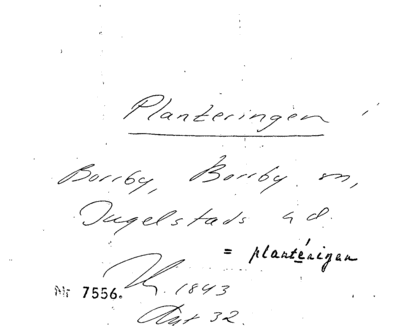 Planteringen
Borrby, Borrby sn,
Ingelstads hd.
= plantéringen
Nr 7556. 1843
Ant 32.